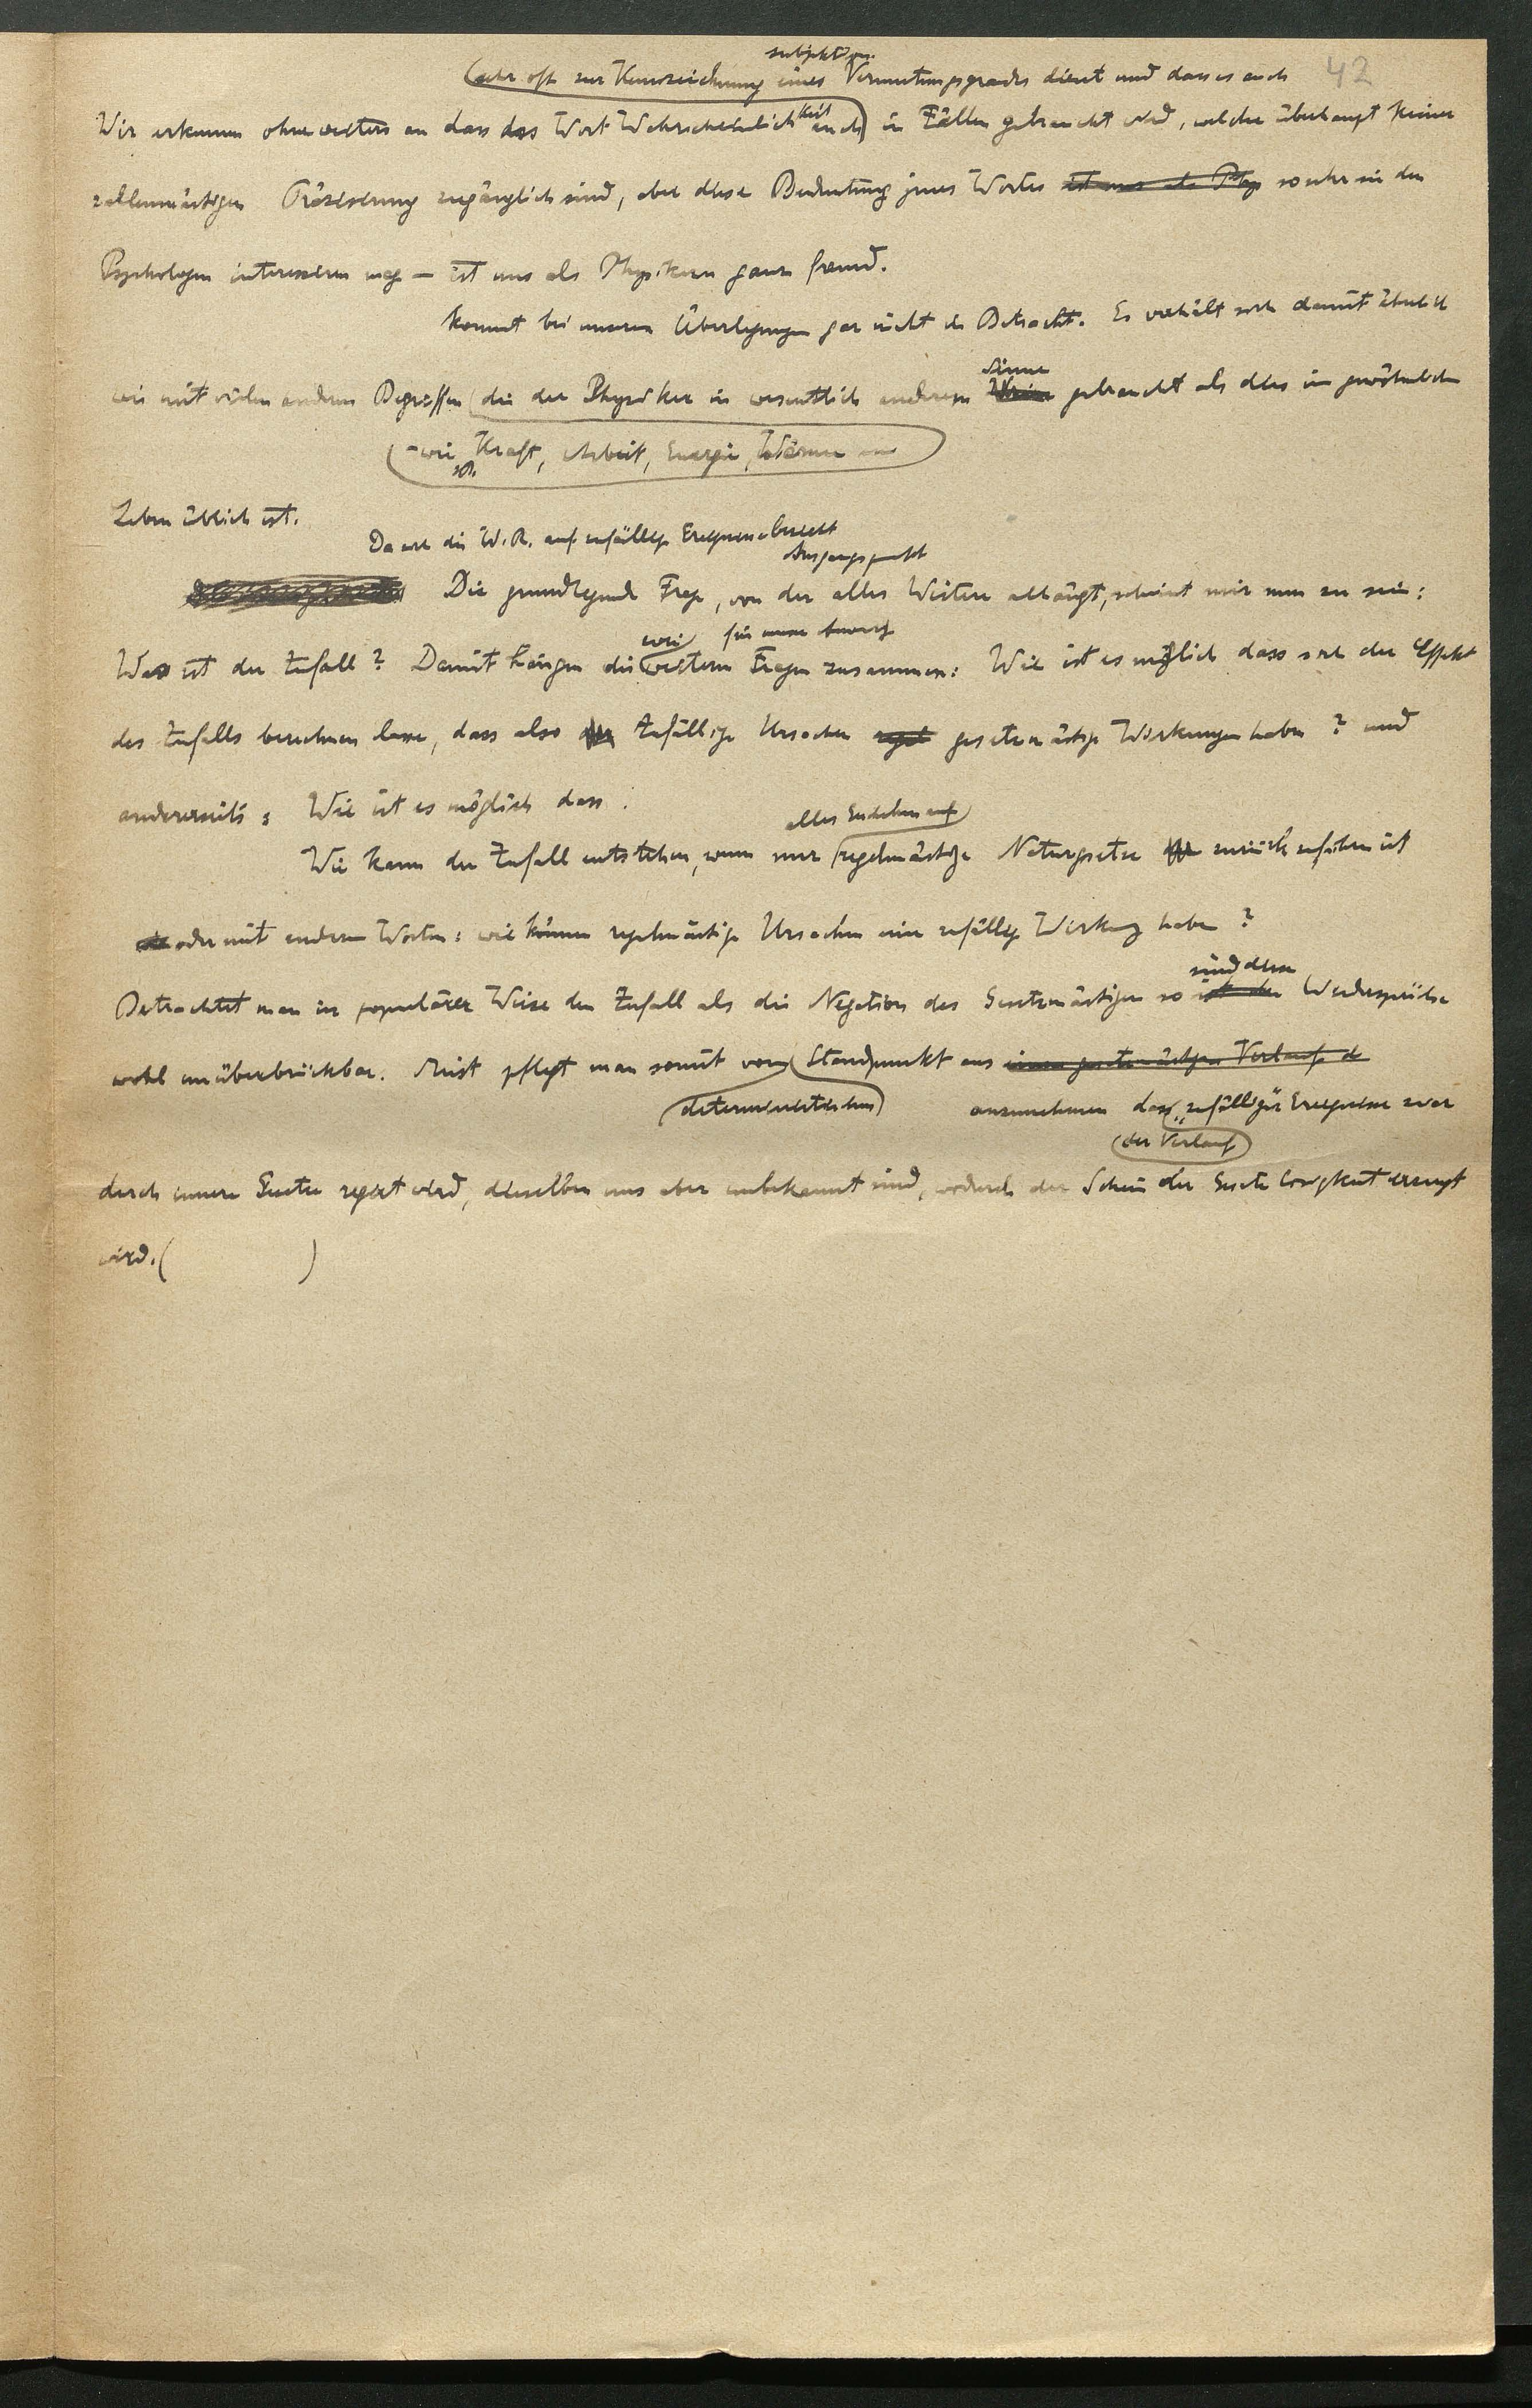 subjektiven
sehr oft zur Kennzeichnung eines Vermutungsgrades dient und dass es auch 42
Wir erkennen ohneweiters an dass das Wort Wahrscheinlichkeit auch in Fällen gebraucht wird, welche überhaupt keiner
zahlenmässigen Präzisierung zugänglich sind, aber diese Bedeutung jenes Wortes ist uns als Phys so sehr sie den
Psychologen interessieren mag — ist uns als Physikern ganz fremd.
kommt bei unseren Überlegungen gar nicht in Betracht. Es verhält sich damit ähnlich
Sinne
wie mit vielen anderen Begriffen die der Physiker in wesentlich anderem gebraucht als dies im gewöhnlichen
- wie z.B. Kraft, Arbeit, Energie, Wärme
Leben üblich ist.
Da sich die W.R. auf zufällige Ereignisse bezieht
Ausgangspunkt
Die grundlegende Frage, von der alles Weitere abhängt, scheint mir nun zu sein:
zwei für unsere
Was ist der Zufall? Damit hängen die weiteren Fragen zusammen: Wie ist es möglich dass sich der Effekt
des Zufalls berechnen lasse, dass also zufällige Ursachen regel gesetzmässige Wirkungen haben? und
andererseits: Wie ist es möglich dass :
alles Geschehen auf
Wie kann der Zufall entstehen, wenn nur regelmässige Naturgesetze zurückzuführen ist
oder mit anderen Worten: wie können regelmässige Ursachen eine zufällige Wirkung haben?
sind diese
Betrachtet man in populärer Weise den Zufall als die Negation des Gesetzmässigen so ist der Widersprüche
wohl unüberbrückbar. Meist pflegt man somit vom Standpunkt aus einen gesetzmässigen Verlauf d
deterministischen anzunehmen dass „zufälliger" Ereignisse zwar
der Verlauf
durch innere Gesetze regiert wird, dieselben uns aber unbekannt sind, wodurch der Schein der Gesetzlosigkeit erzeugt
wird. ( )